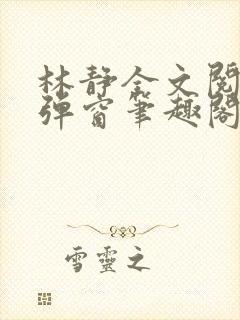 林静全文阅
弹窗笔趣阁
雪灵之